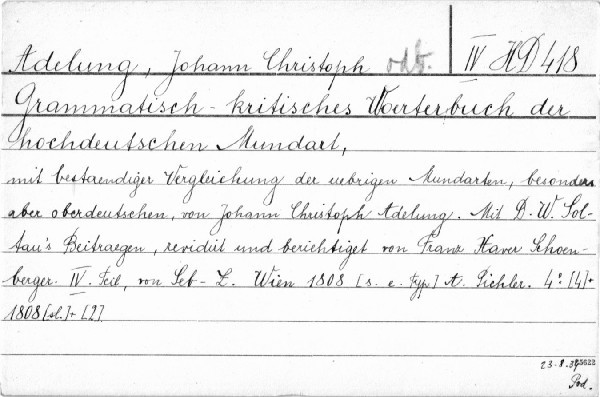 Adelung, Johann Christoph odb. IV HD 418
Grammatisch-kritisches Woerterbuch der
hochdeutschen Mundart,
mit bestaendiger Vergleichung der uebrigen Mundarten, besonders
aber oberdeutschen, von Johann Christoph Adelung. Mit D. W. Sol-
tau's Beitraegen, revidiit und berichtiget von Franz Xaver Schoen-
berger. IV. Teil, von Seb-Z. Wien 1808 [s. e. typ] A. Pichler. 4° [4]+
1808 [sl.]+ [2]
23-8.37 25622
Pod.